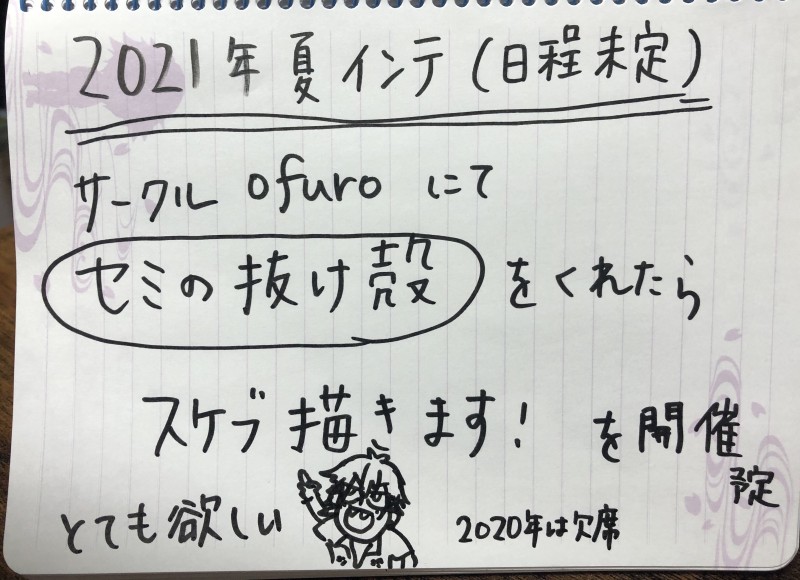 2021年夏インテ(日程未定)
サークル ofuro にて
セミの抜け殻をくれたら
スケブ描きます! を開催
予定
とても欲しい 2020年は欠席